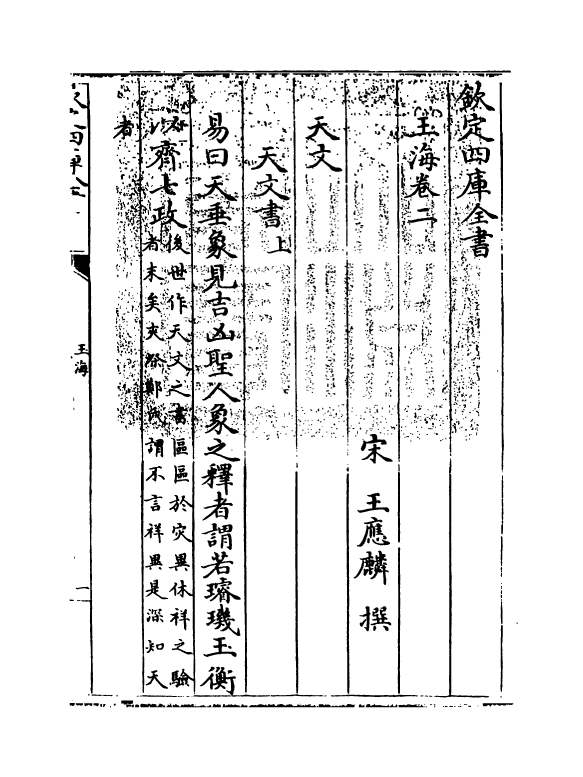 欽定四庫全書
玉海卷二
宋 王應麟 撰
天文
天文書上
易曰天垂象見吉凶聖人象之釋者謂若璿璣玉衡
以齊七政
後世作天文之書區區於灾異休祥之驗
者末矣夾漈鄭氏謂不言祥異是深知天
者
玉海
一